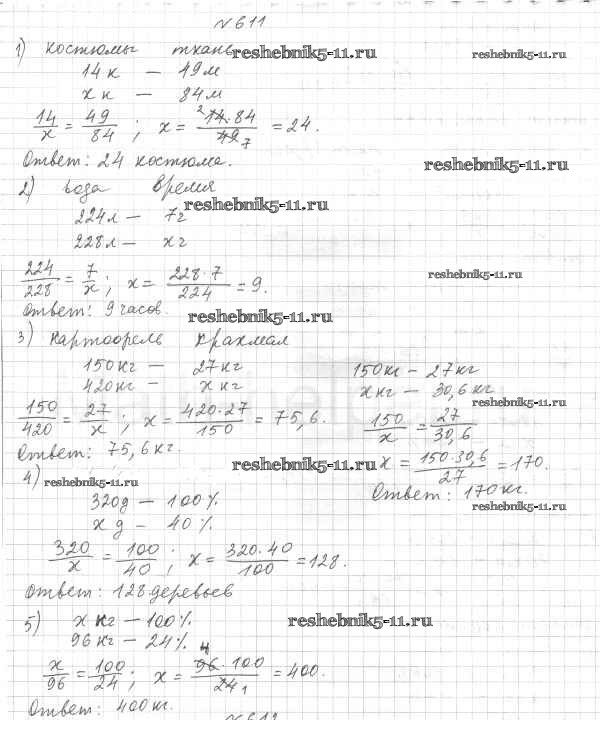 №611
1) костюмы ткань reshebnik5-11.ru reshebnik5-11.ru
14 к — 49 м
x к — 84 м
14/x = 49/84 ; x = 14·84/49 = 24. 2 7
Ответ: 24 костюма. reshebnik5-11.ru
2) вода время
reshebnik5-11.ru
224 л — 7 г
228 л — x г
224/228 = 7/x ; x = 228·7/224 = 9. reshebnik5-11.ru
Ответ: 9 часов. reshebnik5-11.ru
3) картофель крахмал
150 кг — 27 кг
420 кг — x кг
150/420 = 27/x ; x = 420·27/150 = 75,6.
Ответ: 75,6 кг.
150 кг — 27 кг
x кг — 30,6 кг
reshebnik5-11.ru
150/x = 27/30,6
x = 150·30,6/27 = 170.
Ответ: 170 кг.
reshebnik5-11.ru
reshebnik5-11.ru
4) reshebnik5-11.ru
320 д — 100%
x д — 40%
320/x = 100/40 ; x = 320·40/100 = 128.
Ответ: 128 деревьев
5) x кг — 100% reshebnik5-11.ru
96 кг — 24%
x/96 = 100/24 ; x = 96·100/24 = 400. 4 1
Ответ: 400 кг.